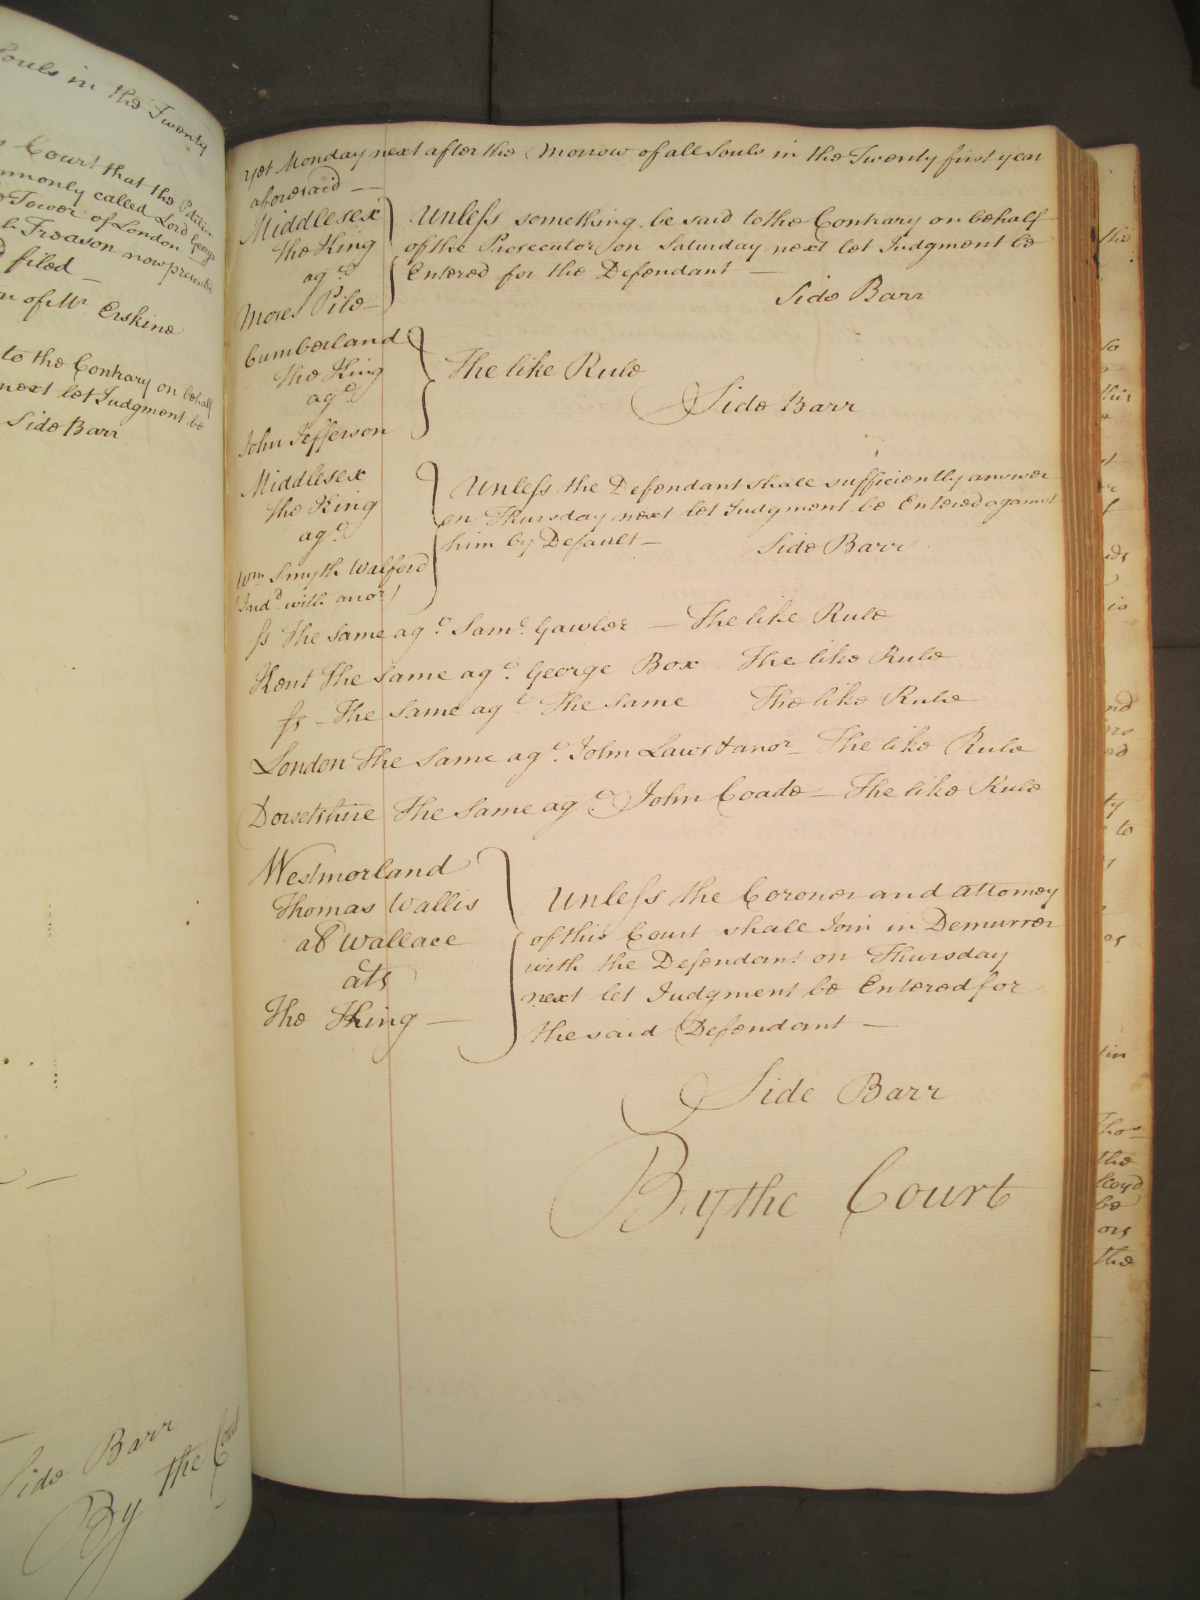 Souls in the Twenty
Court that the Petition
commonly called Lord George
Tower of London
Treason now presented
filed
of Mr. Erskine
to the Contrary on behalf
next let Judgment be
Side Barr
Side Barr
By the Court
yet Monday next after the Morrow of all Souls in the Twenty first year
aforesaid —
Middlesex
the King
agt
Moses Pile —
Unless something be said to the Contrary on behalf
of the Prosecutor on Saturday next let Judgment be
Entered for the Defendant —
Side Barr
Cumberland
the King
agt
John Jefferson
The like Rule
Side Barr
Middlesex
the King
agt
Wm Smyth Walford
(Indd with anor)
Unless the Defendant shall sufficiently answer
on Thursday next let Judgment be Entered against
him by Default —
Side Barr
ss The same agt. Saml. Gawler — The like Rule
Kent The same agt. George Box The like Rule
ss — The same agt The same The like Rule
London The same agt. John Laws & anor — The like Rule
Dorsetshire The same agt John Coade — The like Rule
Westmorland
Thomas Wallis
als Wallace
ats
The King —
Unless the Coroner and attorney
of this Court shall Join in Demurrer
with the Defendant on Thursday
next let Judgment be Entered for
the said Defendant —
Side Barr
By the Court
the
to
the
be
the